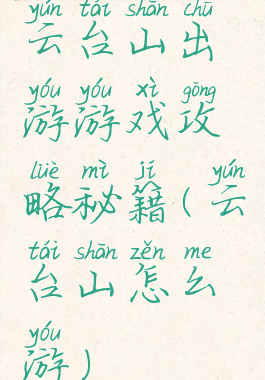 yún tái shān chū
云台山出
yóu yóu xì gōng
游游戏攻
lüè mì jí yún
略秘籍(云
tái shān zěn me
台山怎么
yóu
游)